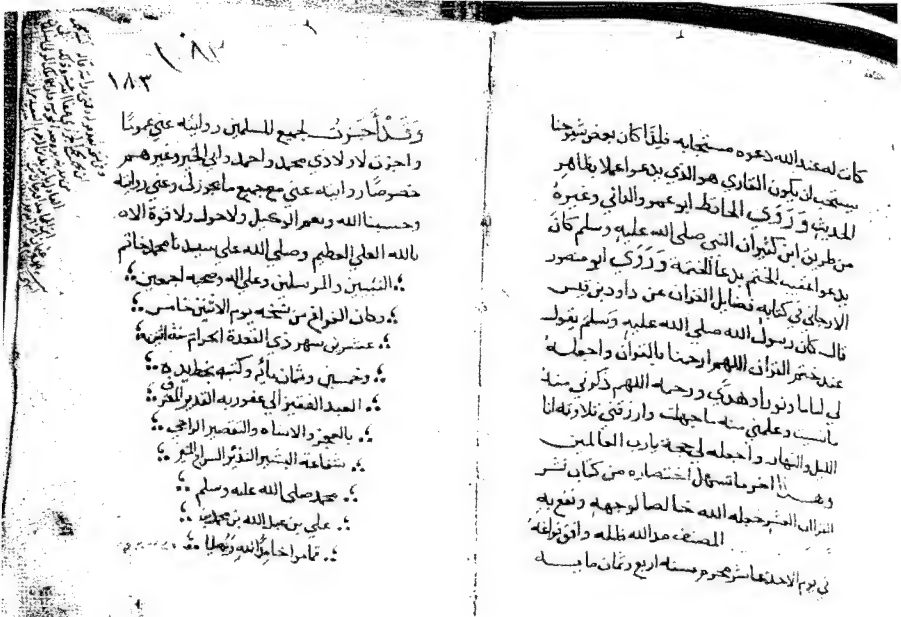 كان له عند الله دعوه مستجابه فلذا كان بعض شيوخنا
يستحب ان يكون القاري هو الذي يدعوا عملا بظاهر
الحديث وروى الحافظ ابو عمرو الداني وغيره
من طريق ابن كثير ان النبي صلى الله عليه وسلم كان
يدعوا عقيب الختم بدعا الختمة وروى ابو منصور
الارجاني في كتابه فضايل القران عن داود بن قيس
قال كان رسول الله صلى الله عليه وسلم يقول
عند ختم القران اللهم ارحمنا بالقران واجعله
لي اماما ونورا وهدى ورحمه اللهم ذكرني منه
ما نسيت وعلمني منه ما جهلت وارزقني تلاوته انا
الليل والنهار واجعله لي حجة يا رب العالمين
وهذا اخر ما تسهل اختصاره من كتاب نشر
القراات العشر جعله الله خالصا لوجهه ونفع به
المصنف مد الله ظله وافق فراغه
في يوم الاحد عاشر محرم سنه اربع وثمان مايه
١٨٣
١٨٣
وقد أجزت لجميع المسلمين روايته عني عموما
واجزت لاولادي محمد واحمد وابي الخير وغيرهم
خصوصا روايته عني مع جميع ما يجوز لي وعني روايته
وحسبنا الله ونعم الوكيل ولا حول ولا قوة الا
بالله العلي العظيم وصلى الله على سيدنا محمد خاتم
النبيين والمرسلين وعلى اله وصحبه اجمعين
وكان الفراغ من نسخه يوم الاثنين خامس
عشرين شهر ذي القعدة الحرام سنة اثنين
وخمسين وثمان مائة وكتبه بخط يده
العبد الفقير الى عفو ربه القدير المعترف
بالعجز والاساه والتقصير الراجي
شفاعة البشير النذير السراج المنير
محمد صلى الله عليه وسلم
علي بن عبد الله بن محمد بن